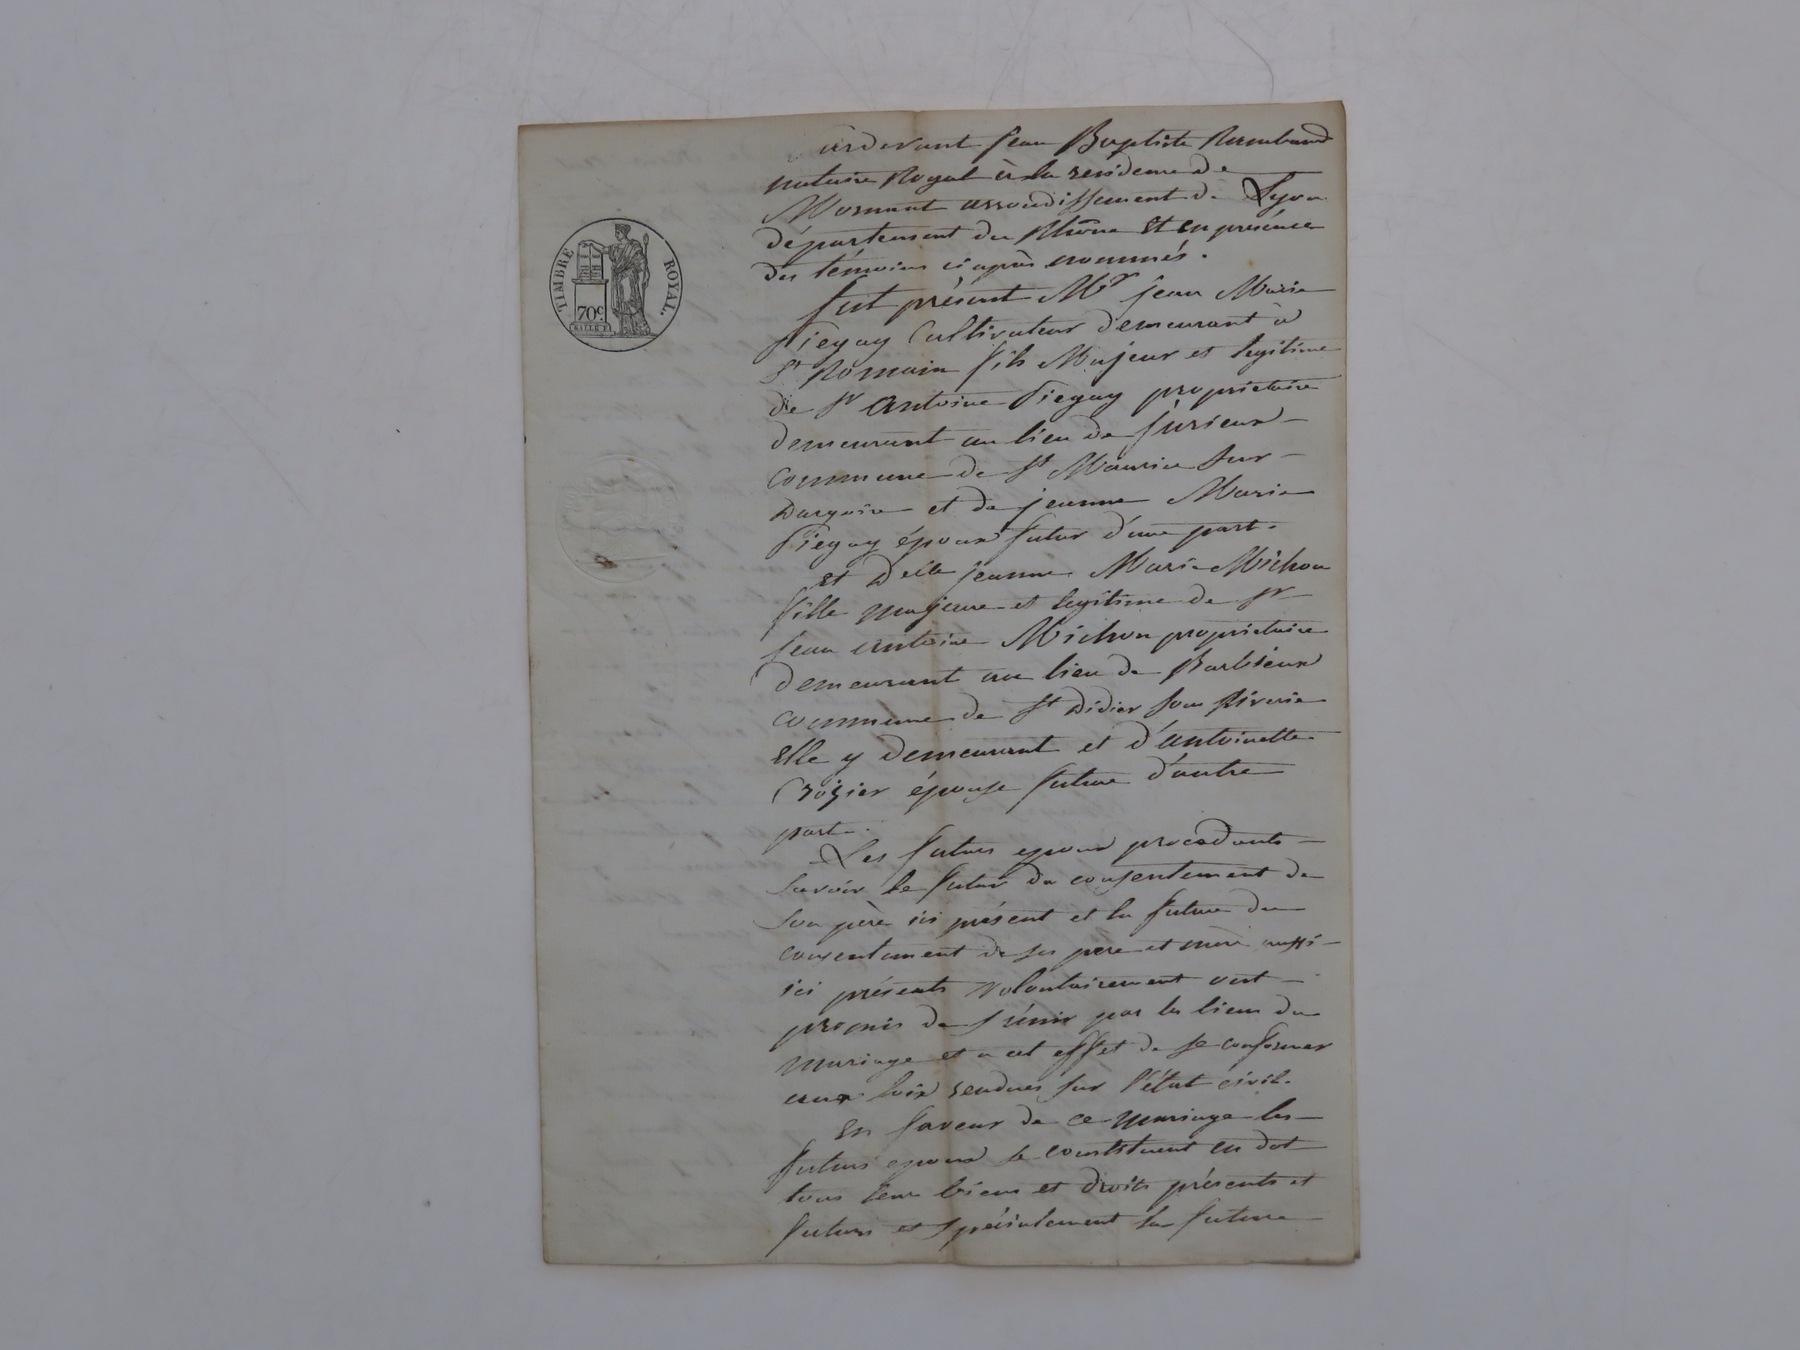 TIMBRE ROYAL
70c
Pardevant Jean Baptiste Rambaud
notaire Royal à la residence de
Mornant arrondissement de Lyon
département du Rhône Et en présence
des témoins ci après nommés.
fut présent Mr jean Marie
Piegay Cultivateur demeurant à
St Romain fils Majeur et legitime
de Sr Antoine Piegay proprietaire
demeurant au lieu de Jurieux
commune de St Maurice Sur
Dargoire et de jeanne Marie
Piegay époux futur d'une part.
Et Delle jeanne Marie Michon
fille majeure et legitime de Sr
Jean Antoine Michon proprietaire
demeurant au lieu de Barbieux
commune de St Didier sous Riverie
Elle y demeurant et d'Antoinette
Crozier épouse future d'autre
part.
Les futurs epoux procedants
savoir le futur du consentement de
son père ici présent et la future du
consentement de ses pere et mère aussi
ici présents volontairement ont
promis de s'unir par les liens du
mariage et a cet effet de se conformer
aux loix rendues sur l'état civil.
En faveur de ce mariage les
futurs epoux se constituent en dot
tous leurs biens et droits présents et
futurs et spécialement la future